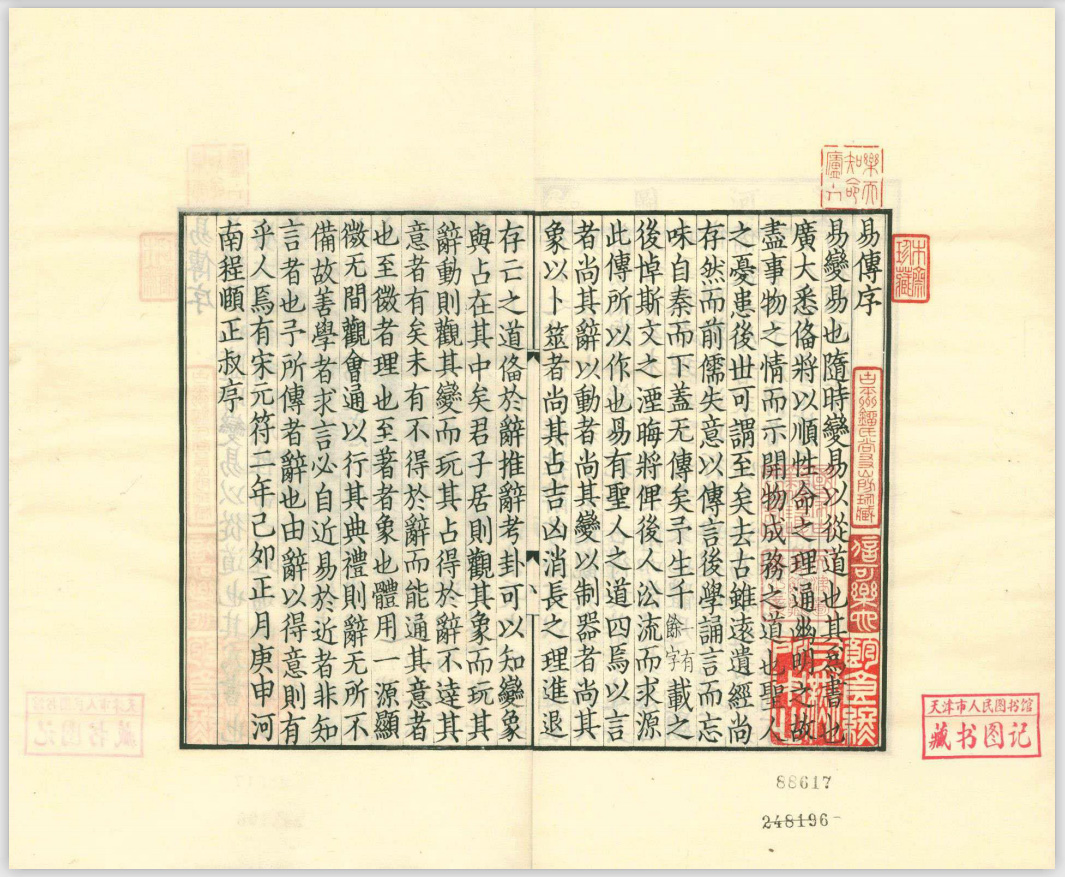 易傳序
易變易也隨時變易以從道也其為書也
廣大悉俻將以順性命之理通幽明之故
盡事物之情而示開物成務之道也聖人
之憂患後世可謂至矣去古雖遠遺經尚
存然而前儒失意以傳言後學誦言而忘
味自秦而下蓋无傳矣予生千餘字有載之
後悼斯文之湮晦將俾後人沿流而求源
此傳所以作也易有聖人之道四焉以言
者尚其辭以動者尚其變以制器者尚其
象以卜筮者尚其占吉凶消長之理進退
存亡之道俻於辭推辭考卦可以知變象
與占在其中矣君子居則觀其象而玩其
辭動則觀其變而玩其占得於辭不達其
意者有矣未有不得於辭而能通其意者
也至微者理也至著者象也體用一源顯
微无間觀會通以行其典禮則辭无所不
備故善學者求言必自近易於近者非知
言者也予所傳者辭也由辭以得意則有
乎人焉有宋元符二年己卯正月庚申河
南程頤正叔序
樂而知命廬六
木齋珍藏
天津市人民图书馆
藏书图记
88617
248196